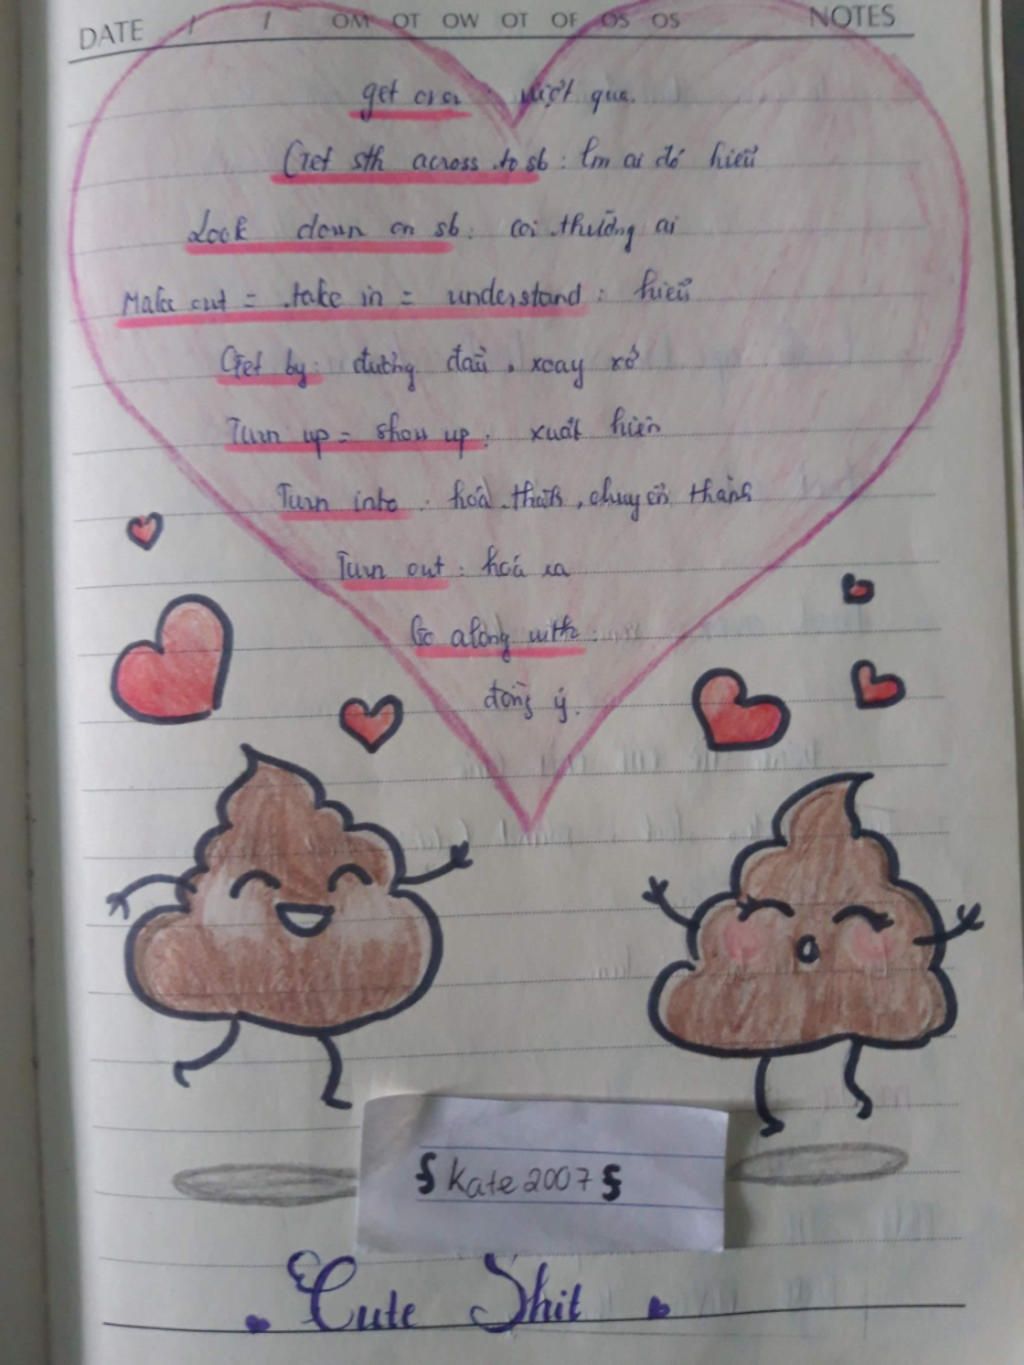 DATE / / OM OT OW OT OF OS OS NOTES
get over : vượt qua.
Get sth across to sb : lm ai đó hiểu
Look down on sb : coi thường ai
Make out = take in = understand : hiểu
Get by : đương đầu, xoay xở
Turn up = show up : xuất hiện
Turn into : hoá thành, chuyển thành
Turn out : hoá ra
Go along with :
đồng ý.
§ Kate 2007 §
Cute Shit